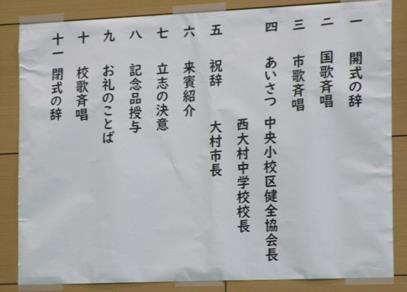 一 開式の辞
二 国歌斉唱
三 市歌斉唱
四 あいさつ 中央小校区健全協会長
西大村中学校校長
五 祝辞 大村市長
六 来賓紹介
七 立志の決意
八 記念品授与
九 お礼のことば
十 校歌斉唱
十一 閉式の辞